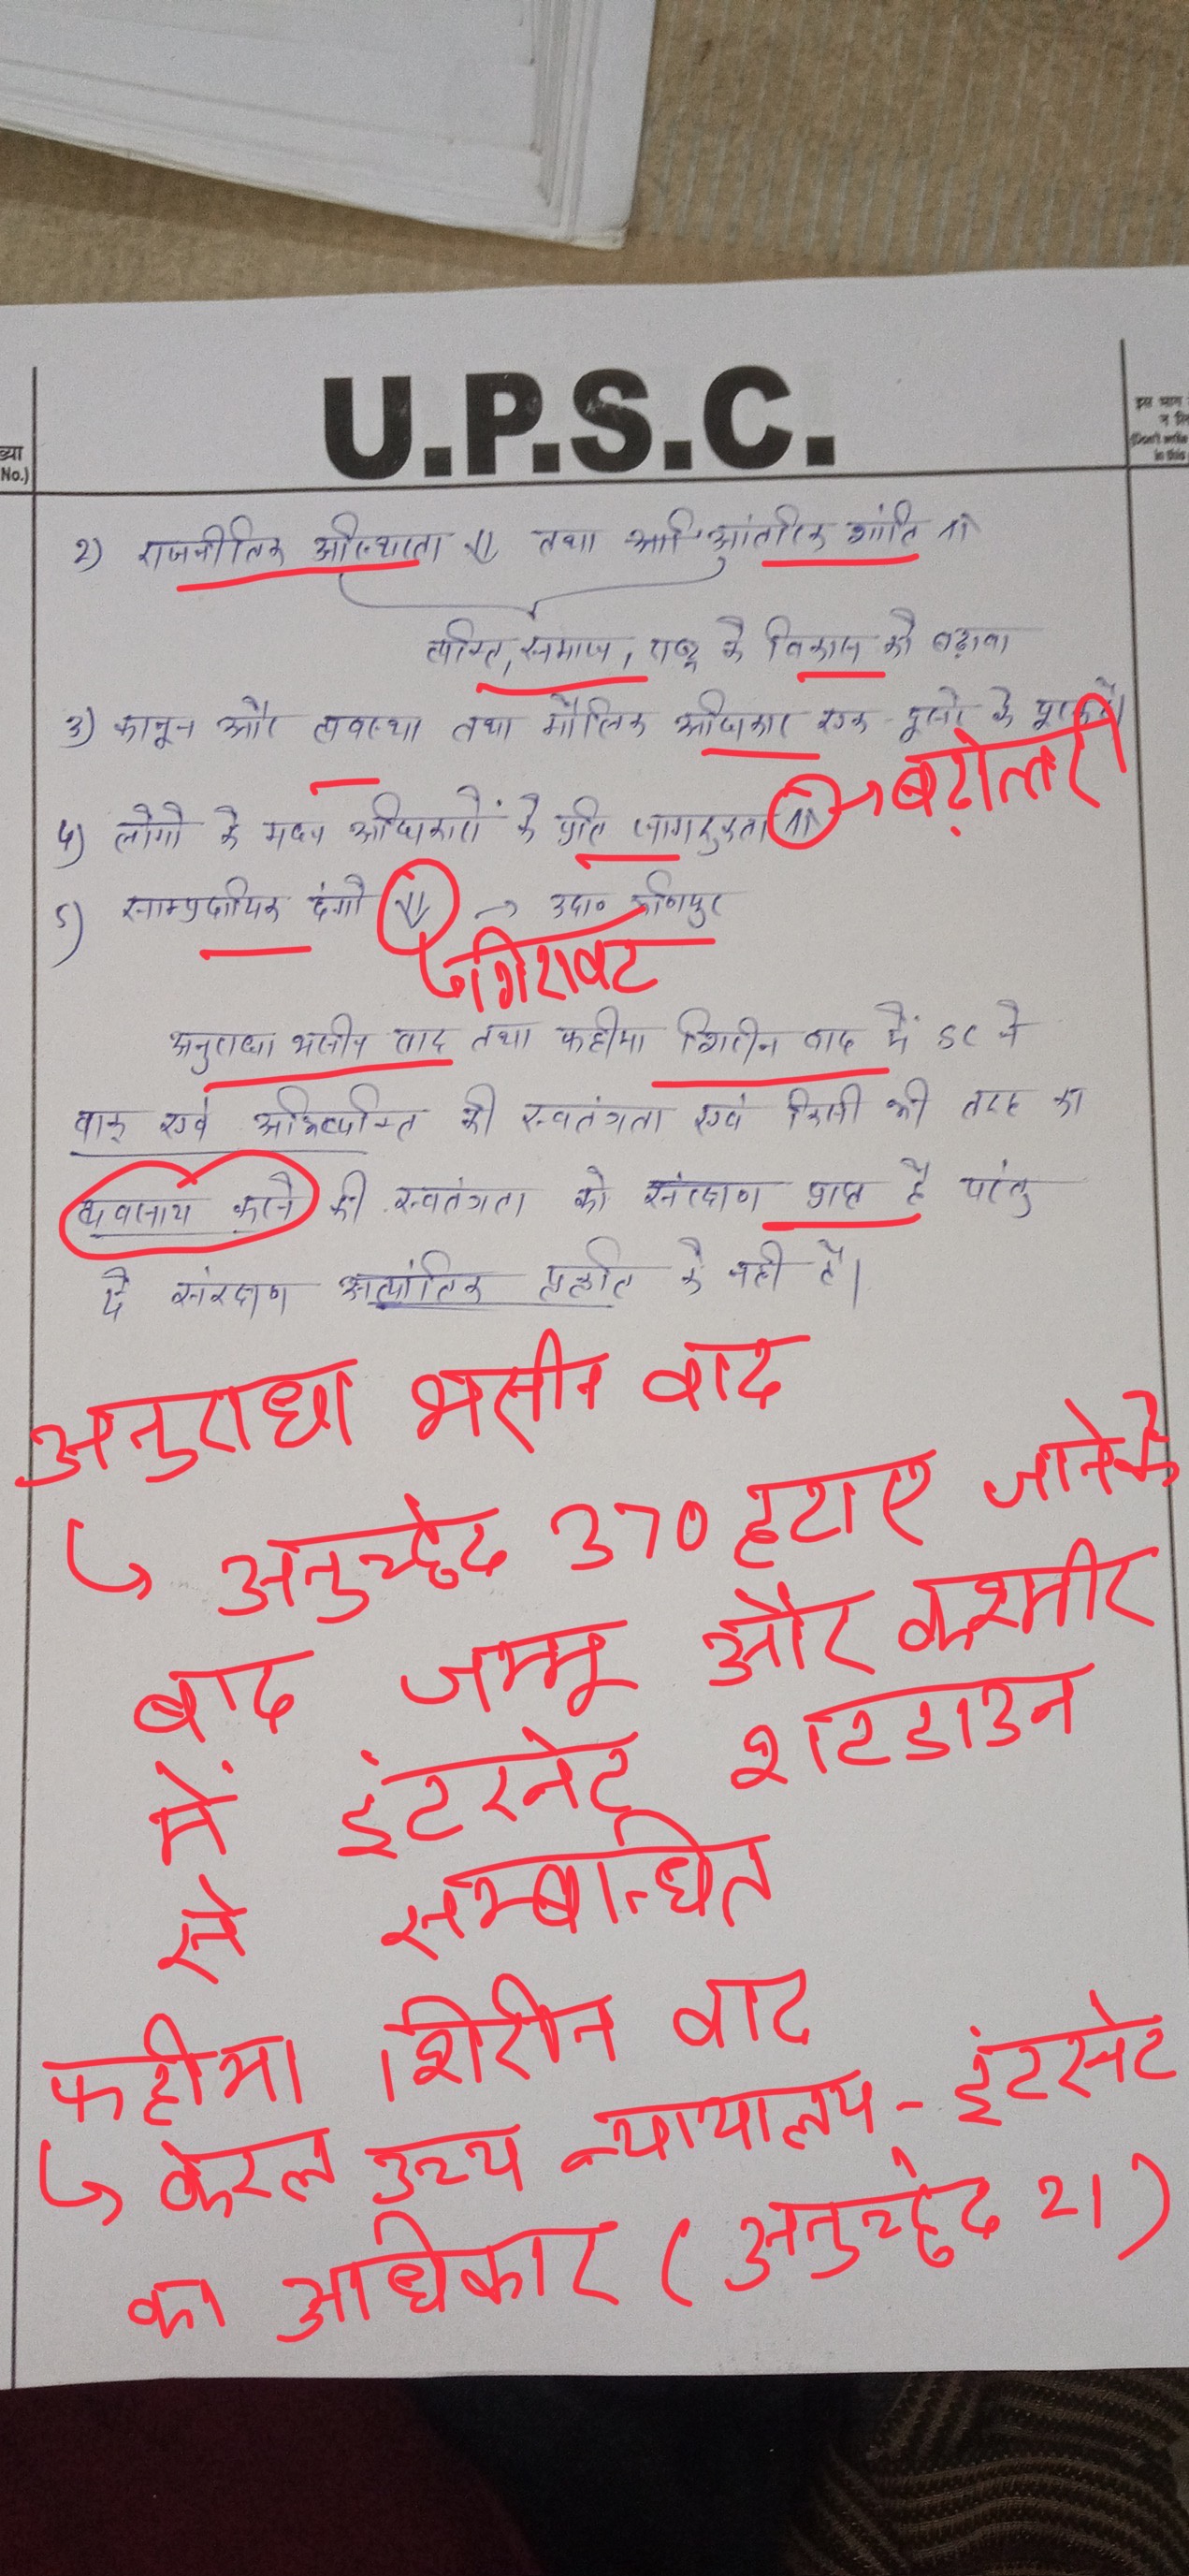 U.P.S.C.
ख्या
No.)
इस भाग
(Don't write
in this
2) राजनीतिक अस्थिरता ⇓ तथा आंतरिक शांति ⇑
व्यक्ति, समाज, राष्ट्र के विकास को बढ़ावा
3) कानून और व्यवस्था तथा मौलिक अधिकार एक-दूसरे के पूरक है।
4) लोगों के मध्य अधिकारों के प्रति जागरुकता ⇑ → बढ़ोत्तरी
5) साम्प्रदायिक दंगों ⇓ → उदा० मणिपुर
गिरावट
अनुराधा भसीन वाद तथा फहीमा शिरीन वाद में SC ने
वाक् एवं अभिव्यक्ति की स्वतंत्रता एवं किसी भी तरह का
व्यवसाय करने की स्वतंत्रता को संरक्षण प्राप्त है परंतु
ये संरक्षण अत्यांतिक प्रकृति के नही है।
अनुराधा भसीन वाद
↳ अनुच्छेद 370 हटाए जाने के
बाद जम्मू और कश्मीर
में इंटरनेट शटडाउन
से सम्बन्धित
फहीमा शिरीन वाद
↳ केरल उच्च न्यायालय - इंटरनेट
का अधिकार (अनुच्छेद 21)